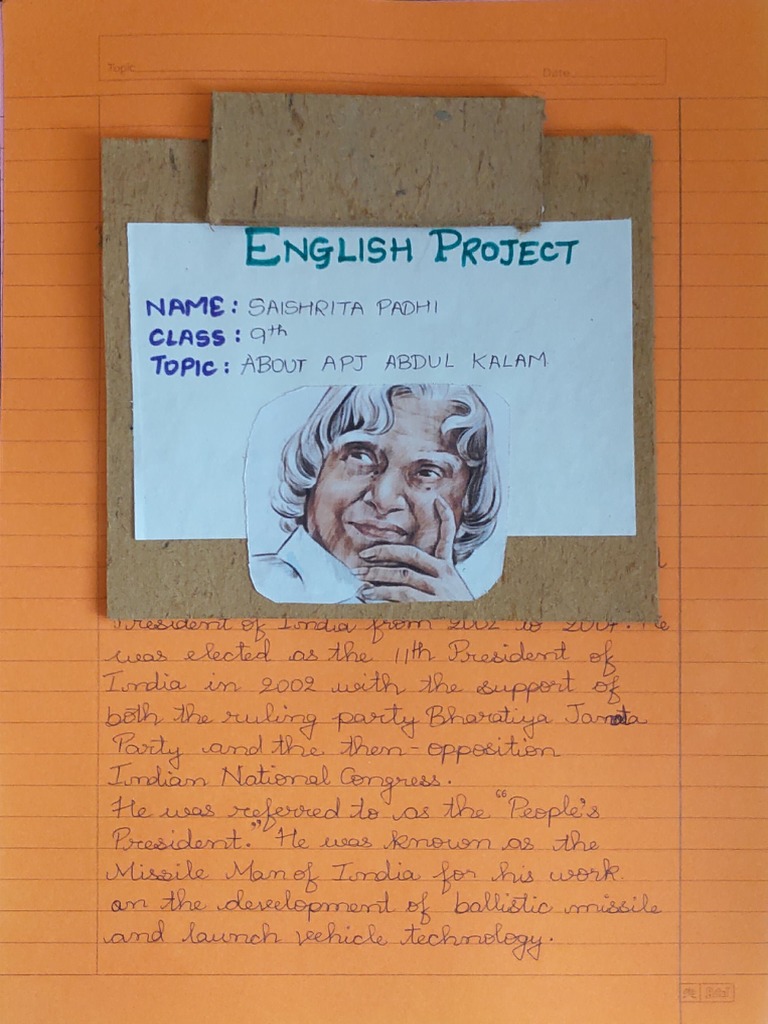 Topic
Date
ENGLISH PROJECT
NAME: SAISHRITA PADHI
CLASS: 9th
TOPIC: ABOUT APJ ABDUL KALAM
President of India from 2002 to 2007. He
was elected as the 11th President of
India in 2002 with the support of
both the ruling party Bharatiya Janata
Party and the then-opposition
Indian National Congress.
He was referred to as the "People's
President." He was known as the
Missile Man of India for his work
on the development of ballistic missile
and launch vehicle technology.